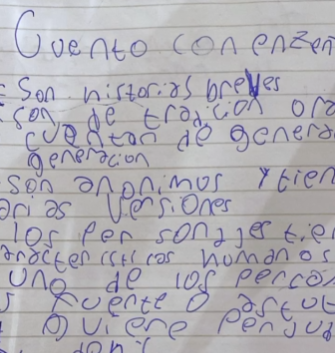 Cuento con enzeñ
= Son historias breves
= son de tradicion ora
cuentan de genera
generacion
Son anonimos y tien
arias versiones
los personajes tie
aracteristicas humanos
uno de los person
fuerte o astu
quiere perjud